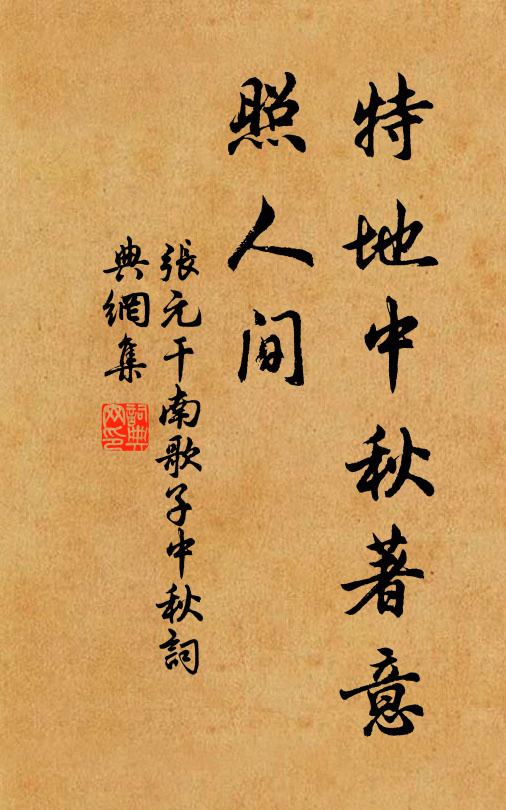 特地中秋著意
照人间
張元干南歌子中秋詞
典網集
詞典網印